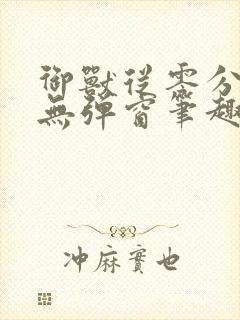 御獸從零分
無彈窗筆趣
冲麻實也